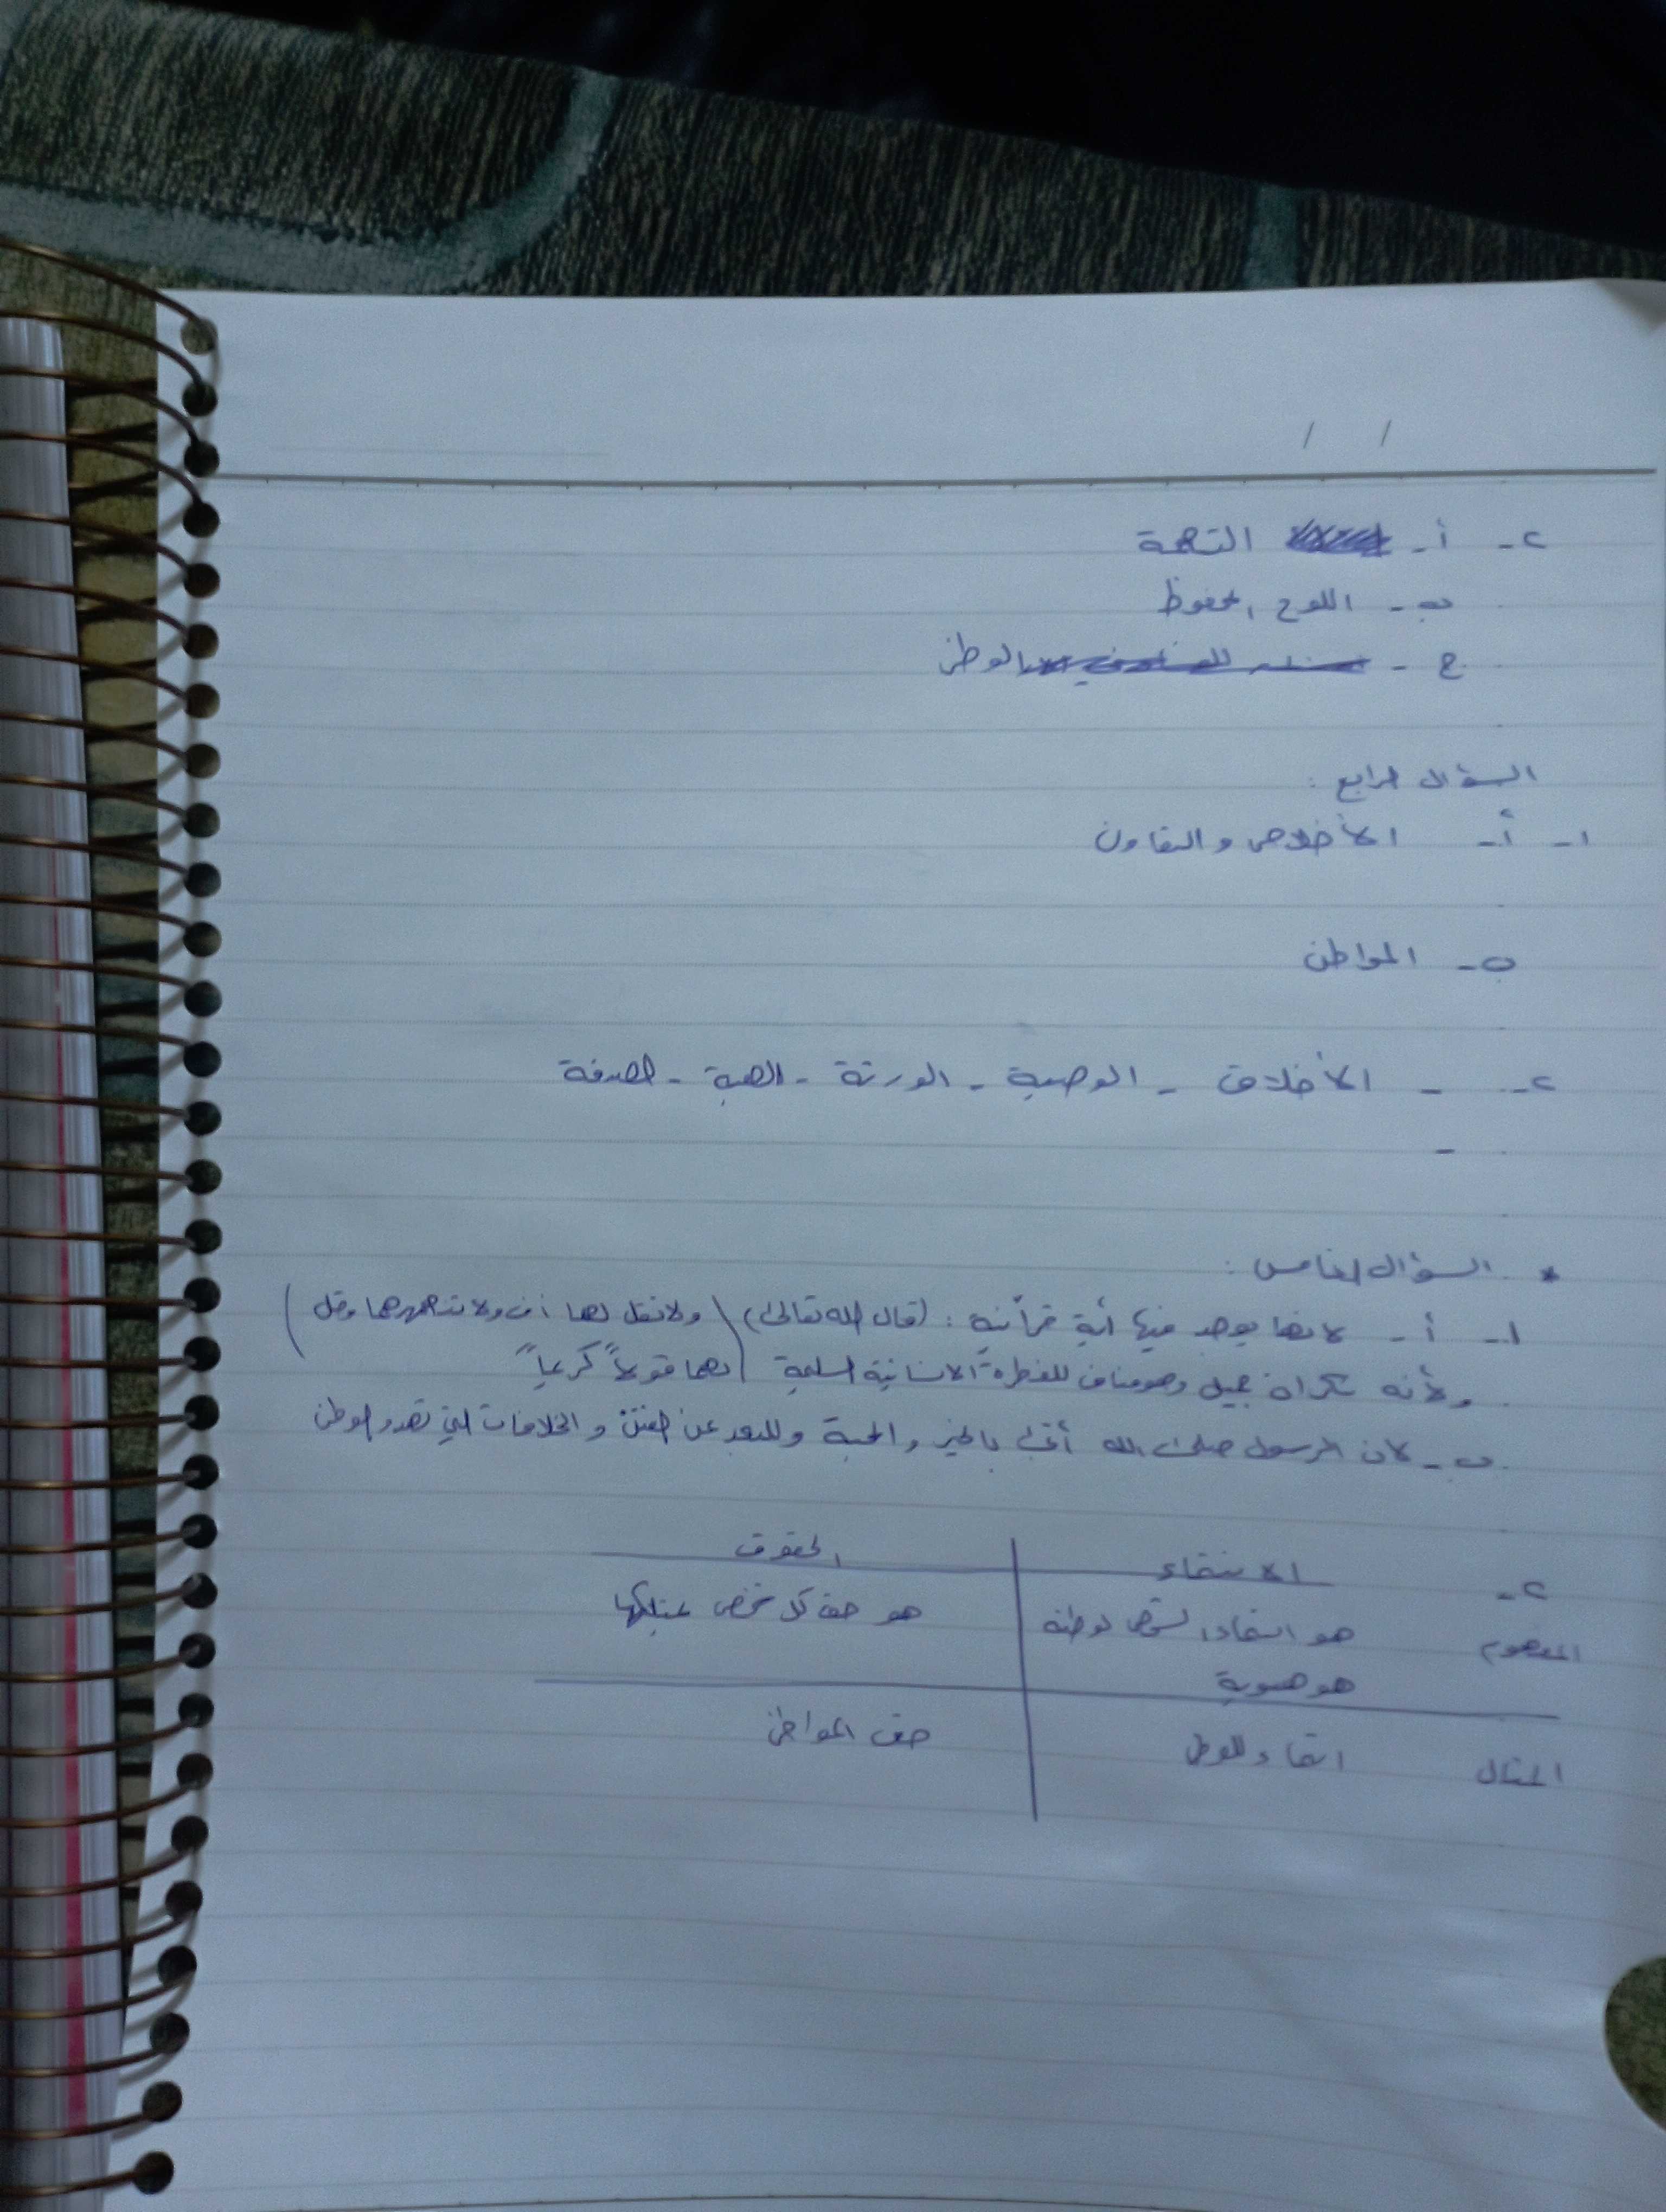 / /
٢- أ- التهمة
ب- اللوح المحفوظ
ج- الوطن
السؤال الرابع :
١- أ- الأخلاص والتعاون
ب- المواطن
٢- - الأخلاق - الوصية - الورثة - الهبة - الصدقة
-
* السؤال الخامس :
١- أ- لانها يوجد فيها أية قرأنية : (قال الله تعالى) (ولا تقل لهما أف ولا تنهرهما وقل
لهما قولاً كريماً)
ولأنه نكران جميل وهو مناف للفطرة الانسانية السليمة
ب- لان الرسول صلى الله أتى بالخير والمحبة وللبعد عن الفتن و الخلافات التي تهدد الوطن
٢- الانتماء الحقوق
المفهوم هو انتماء الشخص لوطنه هو حق كل شخص يمتلكها
هو هوية
المثال انتماء للوطن حق المواطن